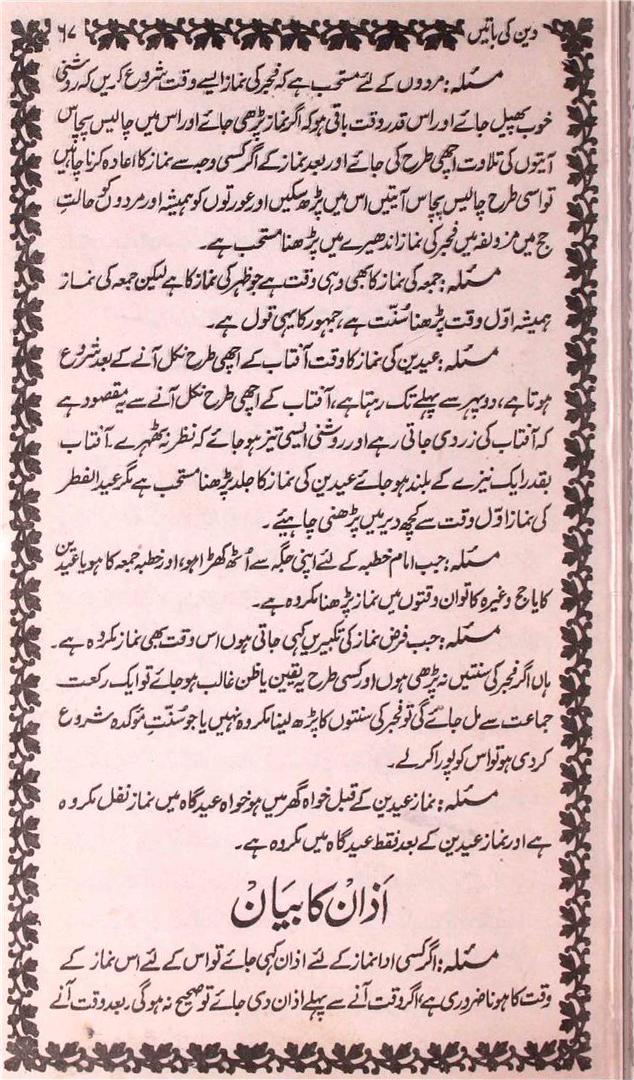 دین کی باتیں ۶۷
مسئلہ: مردوں کے لئے مستحب ہے کہ فجر کی نماز ایسے وقت شروع کریں کہ روشنی
خوب پھیل جائے اور اس قدر وقت باقی ہو کہ اگر نماز پڑھی جائے اور اس میں چالیس پچاس
آیتوں کی تلاوت اچھی طرح کی جائے اور بعد نماز کے اگر کسی وجہ سے نماز کا اعادہ کرنا چاہیں
تو اسی طرح چالیس پچاس آیتیں اس میں پڑھ سکیں اور عورتوں کو ہمیشہ اور مردوں کو حالتِ
حج میں مزدلفہ میں فجر کی نماز اندھیرے میں پڑھنا مستحب ہے۔
مسئلہ: جمعہ کی نماز کا بھی وہی وقت ہے جو ظہر کی نماز کا ہے لیکن جمعہ کی نماز
ہمیشہ اوّل وقت پڑھنا سُنّت ہے، جمہور کا یہی قول ہے۔
مسئلہ: عیدین کی نماز کا وقت آفتاب کے اچھی طرح نکل آنے کے بعد شروع
ہوتا ہے، دوپہر سے پہلے تک رہتا ہے، آفتاب کے اچھی طرح نکل آنے سے یہ مقصود ہے
کہ آفتاب کی زردی جاتی رہے اور روشنی ایسی تیز ہو جائے کہ نظر نہ ٹھہرے۔ آفتاب
بقدر ایک نیزے کے بلند ہو جائے عیدین کی نماز کا جلد پڑھنا مستحب ہے مگر عید الفطر
کی نماز اوّل وقت سے کچھ دیر میں پڑھنی چاہیئے۔
مسئلہ: جب امام خطبہ کے لئے اپنی جگہ سے اُٹھ کھڑا ہو، اور خطبہ جمعہ کا ہو یا عیدین
کا یا حج وغیرہ کا تو ان وقتوں میں نماز پڑھنا مکروہ ہے۔
مسئلہ: جب فرض نماز کی تکبیریں کہی جاتی ہوں اس وقت بھی نماز مکروہ ہے۔
ہاں اگر فجر کی سنتیں نہ پڑھی ہوں اور کسی طرح یہ یقین یا ظن غالب ہو جائے تو ایک رکعت
جماعت سے مل جائے گی تو فجر کی سنتوں کا پڑھ لینا مکروہ نہیں یا جو سُنّتِ مؤکدہ شروع
کر دی ہو تو اس کو پورا کر لے۔
مسئلہ: نماز عیدین کے قبل خواہ گھر میں ہو خواہ عیدگاہ میں نماز نفل مکروہ
ہے اور نماز عیدین کے بعد فقط عیدگاہ میں مکروہ ہے۔
اَذانْ کا بیَانْ
مسئلہ: اگر کسی ادا نماز کے لئے اذان کہی جائے تو اس کے لئے اس نماز کے
وقت کا ہونا ضروری ہے، اگر وقت آنے سے پہلے اذان دی جائے تو صحیح نہ ہوگی۔ بعد وقت آنے